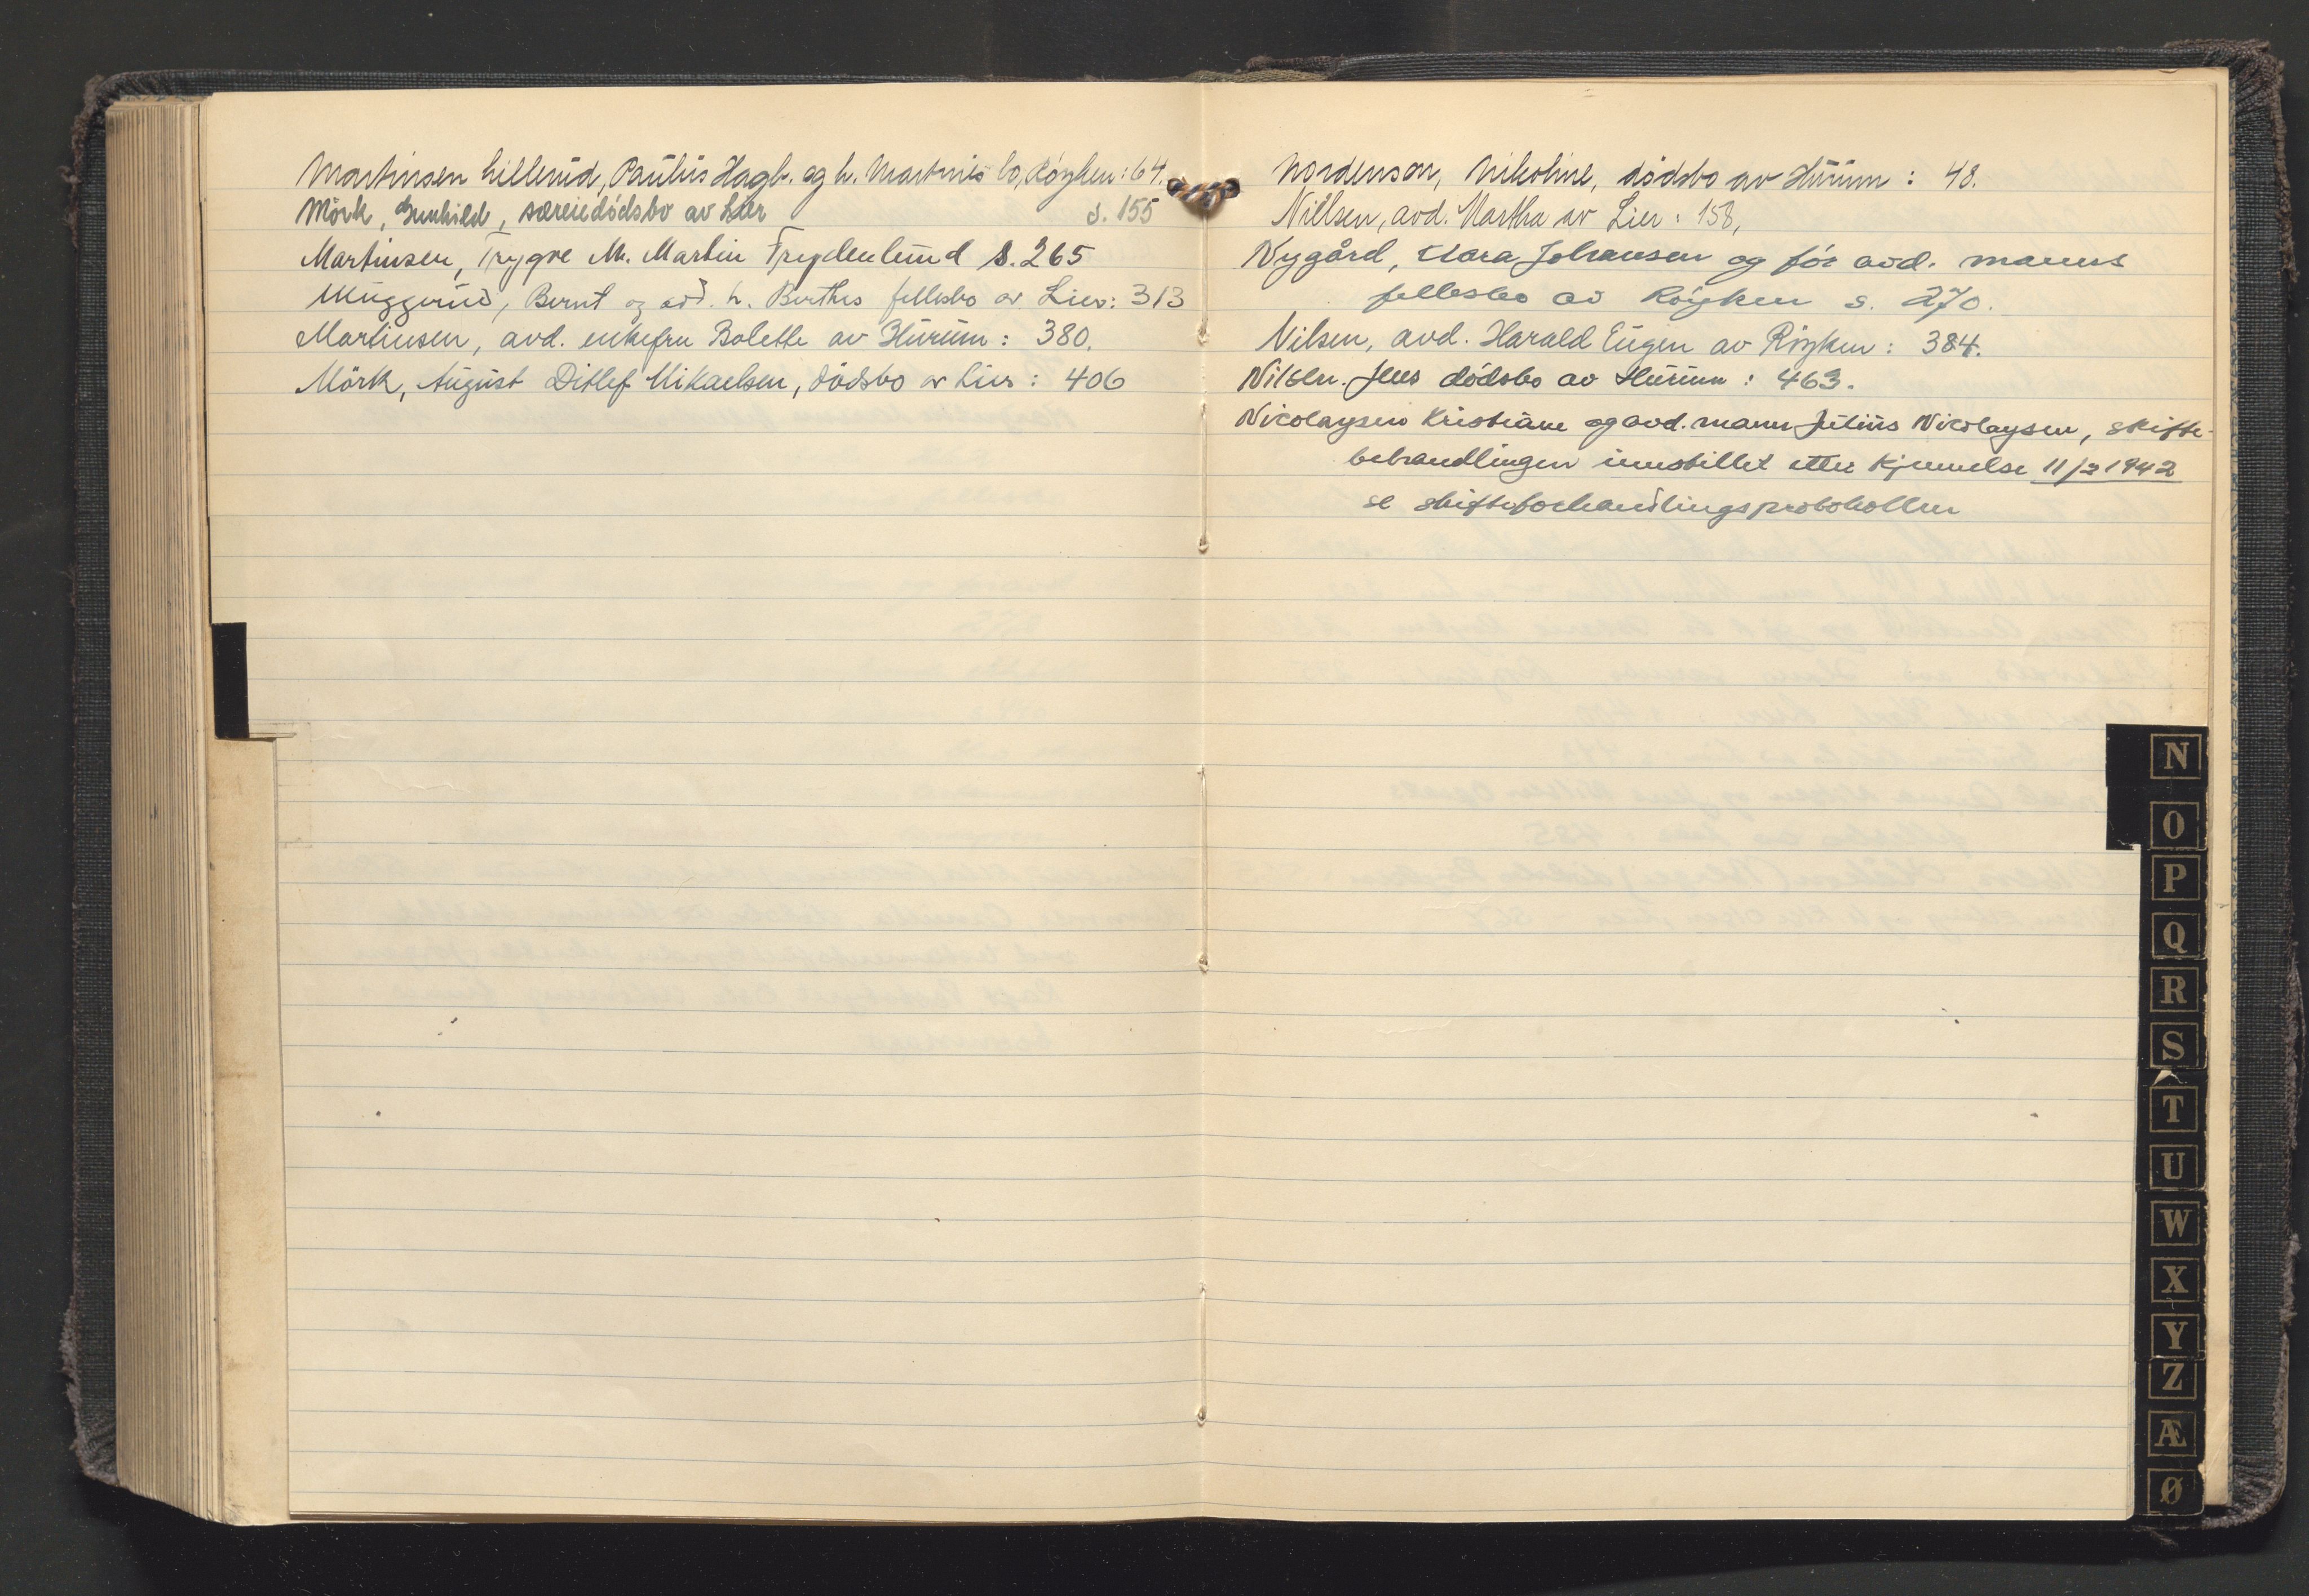 Martinsen Lillerud, Paulus Hagb. og h. Martines bo, Röyken: 64.
Mörk, Gunhild, særeiedödsbo av Lier s. 155
Martinsen, Trygve M. Martin Frydenlund s. 265
Muggerud, Bernt og avd. h. Berthes fellesbo av Lier: 313
Martinsen, avd. enkefru Bolette av Hurum: 380.
Mörk, August Ditlef Mikaelsen, dödsbo av Lier: 406
Nordenson, Nikoline, dödsbo av Hurum: 48.
Nillsen, avd. Martha av Lier: 158,
Nygård, Clara Johansen og før avd. manns
fellesbo av Röyken s. 270.
Nilsen, avd. Harald Eugen av Röyken: 384.
Nilsen. Jens dödsbo av Hurum: 463.
Nicolaysen Kristiane og avd. mann Julius Nicolaysen, skifte-
behandlingen innstillet etter kjennelse 11/2 1942
se skifteforhandlingsprotokollen
N
O
P
Q
R
S
T
U
W
X
Y
Z
Æ
Ø